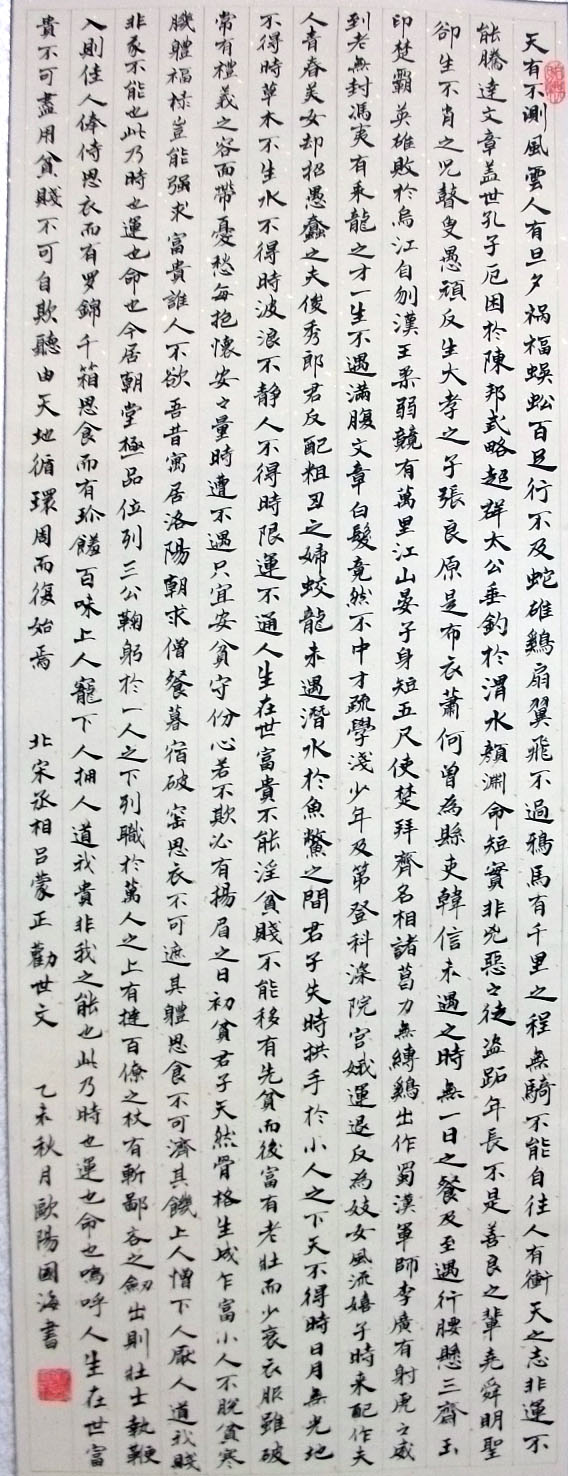 天有不測風雲人有旦夕祸福蜈蚣百足行不及蛇雄鷄扇翼飛不過鴉馬有千里之程無騎不能自往人有衝天之志非運不
能騰達文章盖世孔子厄困於陳邦武略超群太公垂釣於渭水顔淵命短實非兇惡之徒盗跖年長不是善良之輩堯舜明聖
卻生不肖之児瞽叟愚頑反生大孝之子張良原是布衣蕭何曾為縣吏韓信未遇之時無一日之餐及至遇行腰懸三齊玉
印楚霸英雄敗於烏江自刎漢王柔弱競有萬里江山晏子身短五尺使楚拜齊名相諸葛力無縛鷄出作蜀漢軍師李廣有射虎之威
到老無封馮夷有乘龍之才一生不遇滿腹文章白髮竟然不中才疏學淺少年及第登科滦院宫娥運退反為妓女風流嬉子時来配作夫
人青春美女却招愚蠢之夫俊秀郎君反配粗丑之婦蛟龍未遇潛水於魚鱉之間君子失時拱手於小人之下天不得時日月無光地
不得時草木不生水不得時波浪不静人不得時限運不通人生在世富貴不能淫貧賤不能移有先貧而後富有老壯而少衰衣服雖破
常有禮義之容面帶憂愁每抱懷安之量時遭不遇只宜安貧守份心若不欺必有揚眉之日初貧君子天然骨格生成乍富小人不脱貧寒
膜體福禄豈能强求富貴誰人不欲吾昔寓居洛陽朝求僧餐暮宿破窑思衣不可遮其體思食不可濟其饑上人憎下人厭人道我賤
非我不能也此乃時也運也命也今居朝堂極一品位列三公鞠躬於一人之下列職於萬人之上有撻百僚之杖有斬鄙吝之劍出則壯士執鞭
入則佳人俸侍思衣而有罗錦千箱思食而有珍饈百味上人寵下人拥人道我貴非我之能也此乃時也運也命也嗚呼人生在世富
貴不可盡用貧賤不可自欺聽由天地循環周而復始焉 北宋丞相吕蒙正勸世文 乙未秋月歐陽國海書